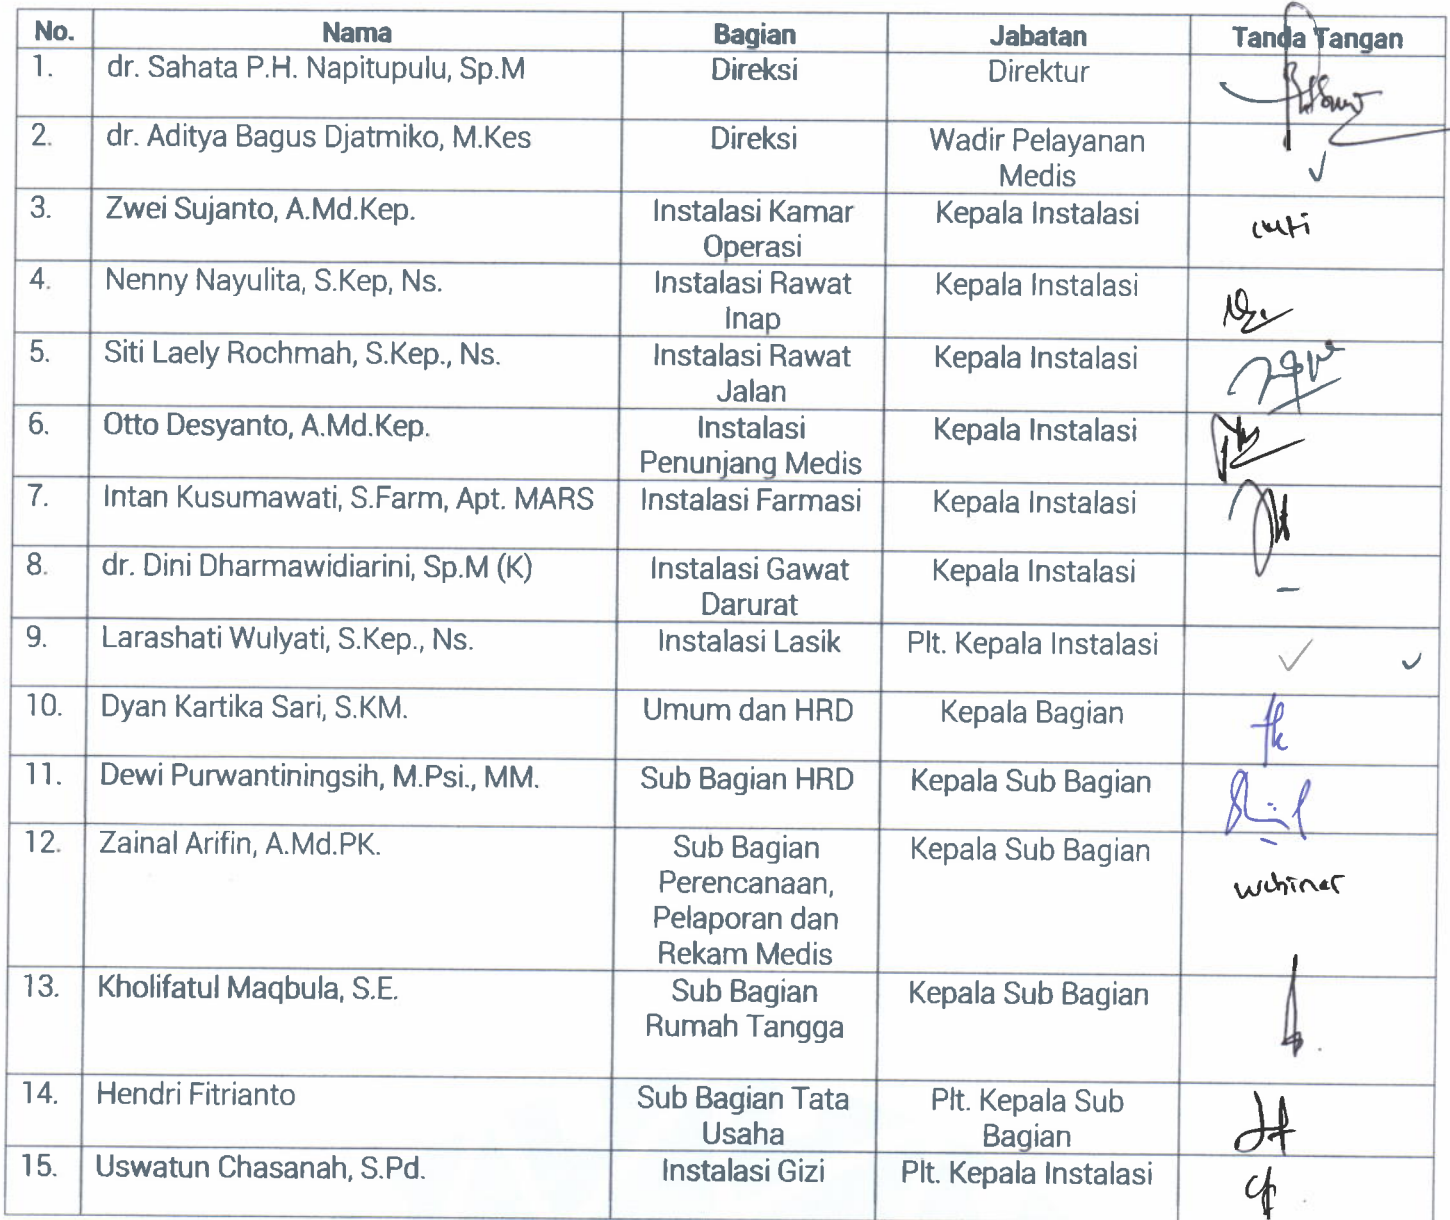 No. Nama Bagian Jabatan Tanda Tangan
1. dr. Sahata P.H. Napitupulu, Sp.M Direksi Direktur
2. dr. Aditya Bagus Djatmiko, M.Kes Direksi Wadir Pelayanan
Medis ✓
3. Zwei Sujanto, A.Md.Kep. Instalasi Kamar Kepala Instalasi cuti
Operasi
4. Nenny Nayulita, S.Kep, Ns. Instalasi Rawat Kepala Instalasi
Inap
5. Siti Laely Rochmah, S.Kep., Ns. Instalasi Rawat Kepala Instalasi
Jalan
6. Otto Desyanto, A.Md.Kep. Instalasi Kepala Instalasi
Penunjang Medis
7. Intan Kusumawati, S.Farm, Apt. MARS Instalasi Farmasi Kepala Instalasi
8. dr. Dini Dharmawidiarini, Sp.M (K) Instalasi Gawat Kepala Instalasi -
Darurat
9. Larashati Wulyati, S.Kep., Ns. Instalasi Lasik Plt. Kepala Instalasi ✓ ✓
10. Dyan Kartika Sari, S.KM. Umum dan HRD Kepala Bagian
11. Dewi Purwantiningsih, M.Psi., MM. Sub Bagian HRD Kepala Sub Bagian
12. Zainal Arifin, A.Md.PK. Sub Bagian Kepala Sub Bagian
Perencanaan, webinar
Pelaporan dan
Rekam Medis
13. Kholifatul Maqbula, S.E. Sub Bagian Kepala Sub Bagian
Rumah Tangga
14. Hendri Fitrianto Sub Bagian Tata Plt. Kepala Sub
Usaha Bagian
15. Uswatun Chasanah, S.Pd. Instalasi Gizi Plt. Kepala Instalasi